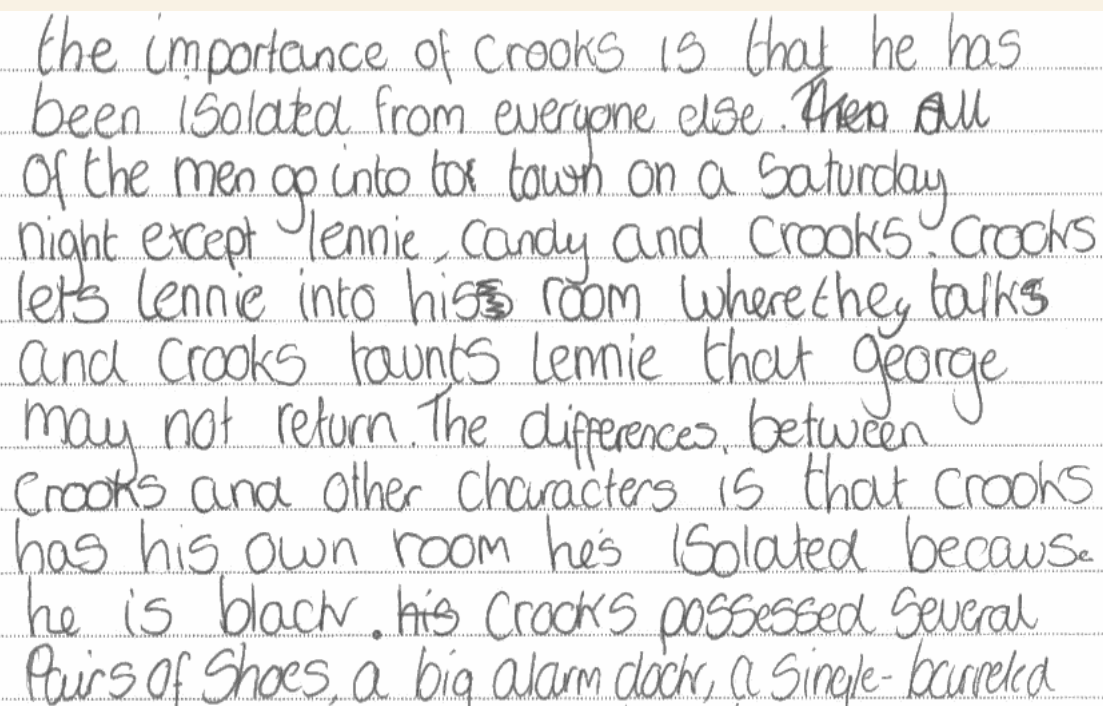 the importance of Crooks is that he has
been isolated from everyone else. Then All
of the men go into tos town on a Saturday
night except lennie, Candy and Crooks. Crooks
lets lennie into his room where they talks
and Crooks taunts lennie that george
may not return. The differences between
Crooks and other characters is that Crooks
has his own room he's isolated because
he is black. his Crooks possessed several
Pairs of Shoes, a big alarm clock, a single-barreled